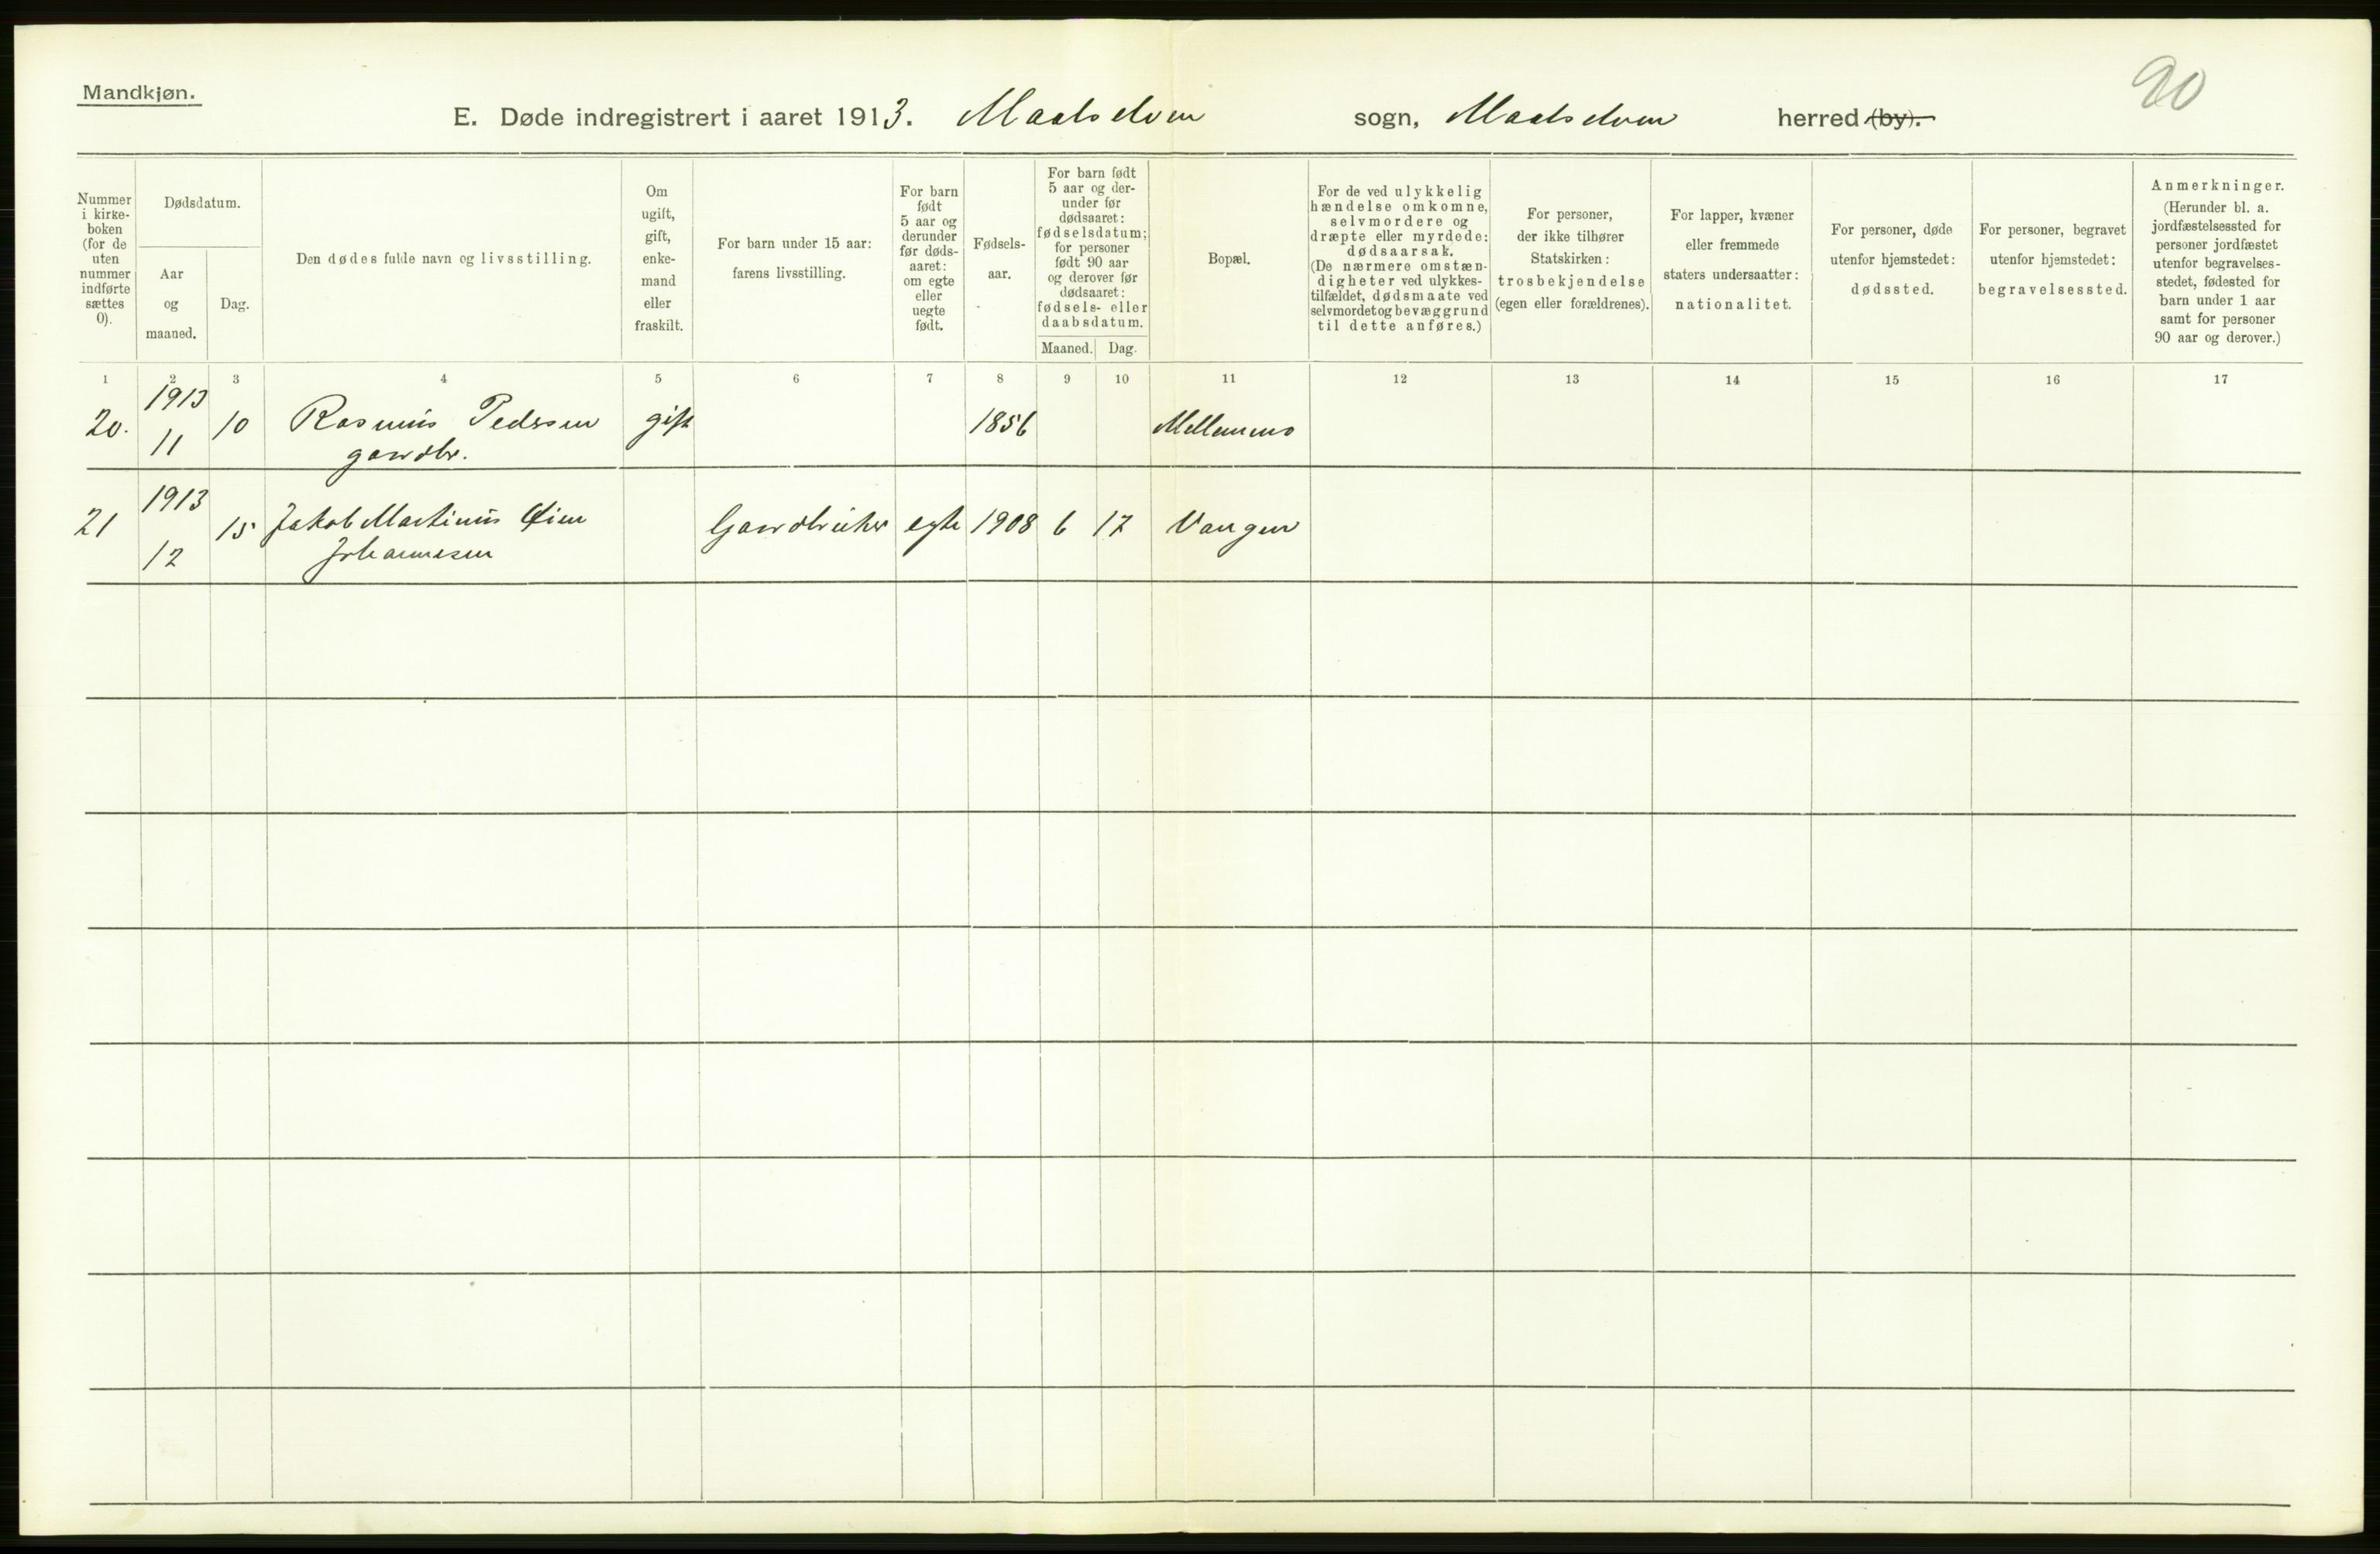 Mandkjøn.
90
E. Døde indregistrert i aaret 1913. Maalselven sogn, Maalselven herred (by).
Nummer i kirke-boken (for de uten nummer indførte sættes 0).
Dødsdatum.
Aar og maaned.
Dag.
Den dødes fulde navn og livsstilling.
Om ugift, gift, enke-mand eller fraskilt.
For barn under 15 aar: farens livsstilling.
For barn født 5 aar og derunder før døds-aaret: om egte eller uegte født.
Fødsels-aar.
For barn født 5 aar og der-under før dødsaaret: fødselsdatum; for personer født 90 aar og derover før dødsaaret: fødsels- eller daabsdatum.
Maaned. Dag.
Bopæl.
For de ved ulykkelig hændelse omkomne, selvmordere og dræpte eller myrdede: dødsaarsak. (De nærmere omstæn-digheter ved ulykkes-tilfældet, dødsmaate ved selvmordet og bevæggrund til dette anføres.)
For personer, der ikke tilhører Statskirken: trosbekjendelse (egen eller forældrenes).
For lapper, kvæner eller fremmede staters undersaatter: nationalitet.
For personer, døde utenfor hjemstedet: dødssted.
For personer, begravet utenfor hjemstedet: begravelsessted.
Anmerkninger. (Herunder bl. a. jordfæstelsessted for personer jordfæstet utenfor begravelses-stedet, fødested for barn under 1 aar samt for personer 90 aar og derover.)
1 2 3 4 5 6 7 8 9 10 11 12 13 14 15 16 17
1913
20. 11 10 Rasmus Pedersen gift 1856 Mellemmo
gaardbr.
1913
21 12 15 Jakob Martinus Øien Gaardbruker egte 1908 6 17 Vangen
Johannesen